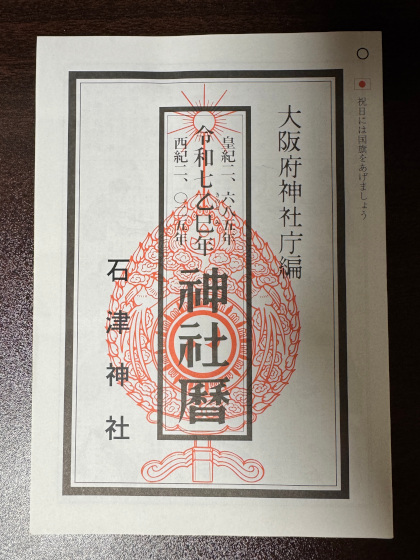 祝日には国旗をあげましょう
大阪府神社庁編
皇紀二、六八五年
令和七乙巳年
西紀二、〇二五年
神社暦
石津神社